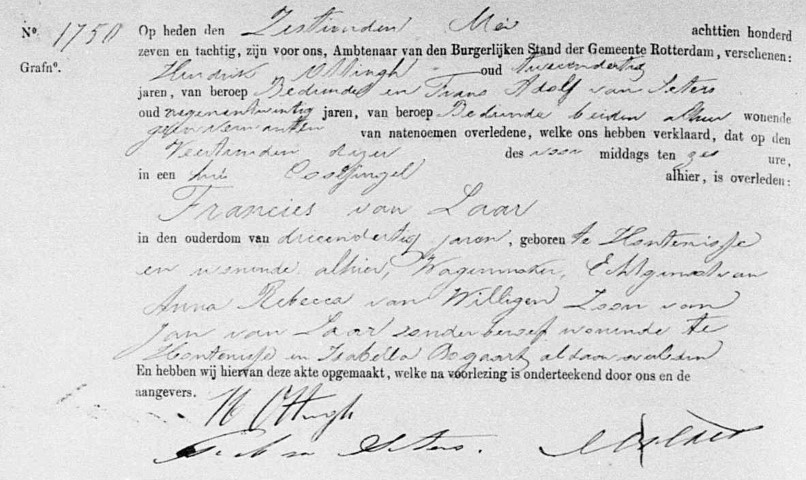 No. 1750 Op heden den Zestienden Mei achttien honderd
zeven en tachtig, zijn voor ons, Ambtenaar van den Burgerlijken Stand der Gemeente Rotterdam, verschenen:
Grafno. Hendrik Ottingh oud tweeendertig
jaren, van beroep Bediende en Frans Adolf van Seters
oud negenentwintig jaren, van beroep Bediende beiden alhier wonende
geen verwanten van natenoemen overledene, welke ons hebben verklaard, dat op den
Veertienden dezer des voor middags ten zes ure,
in een huis Oostsingel alhier, is overleden:
Francies van Laar
in den ouderdom van drieendertig jaren, geboren te Hontenisse
en wonende alhier, Wagenmaker, Echtgenoot van
Anna Rebecca van Willigen Zoon van
Jan van Laar zonder beroep wonende te
Hontenisse en Isabella Bogaart aldaar overleden
En hebben wij hiervan deze akte opgemaakt, welke na voorlezing is onderteekend door ons en de
aangevers.
H Ottingh
van Seters.